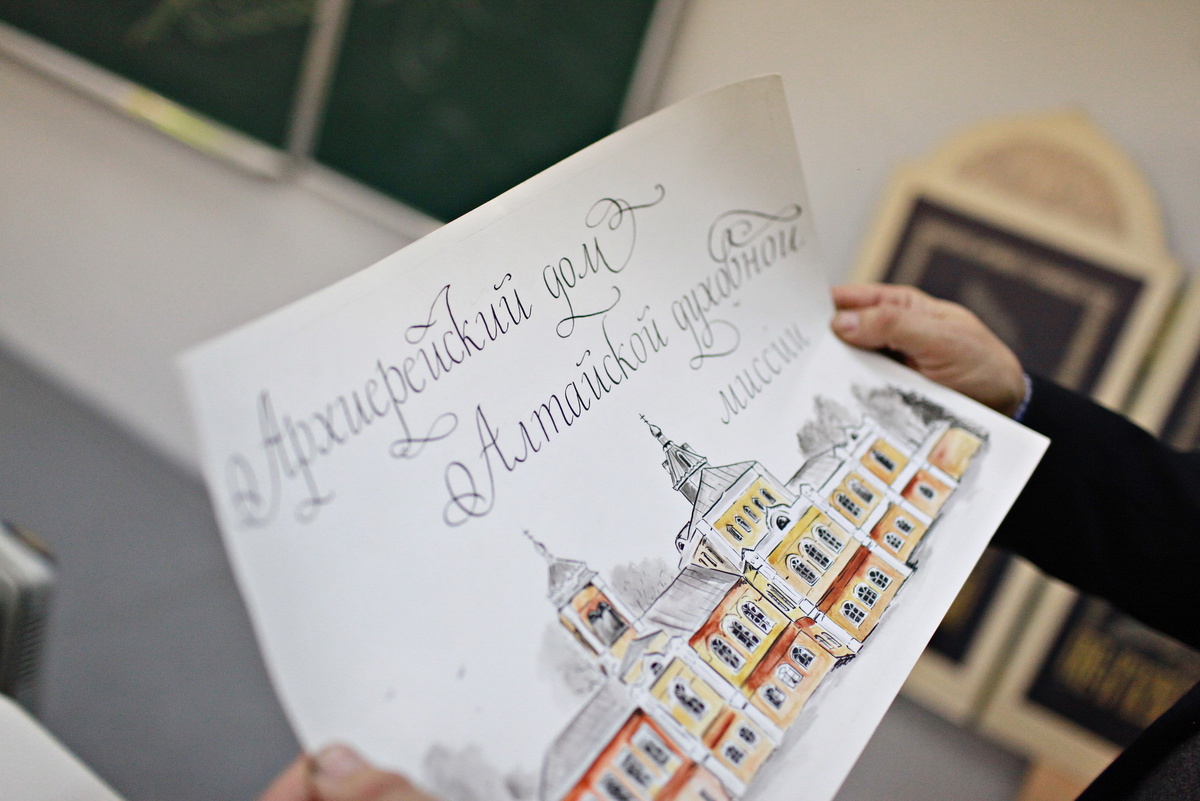 Архиерейский дом
Алтайской духовной
миссии